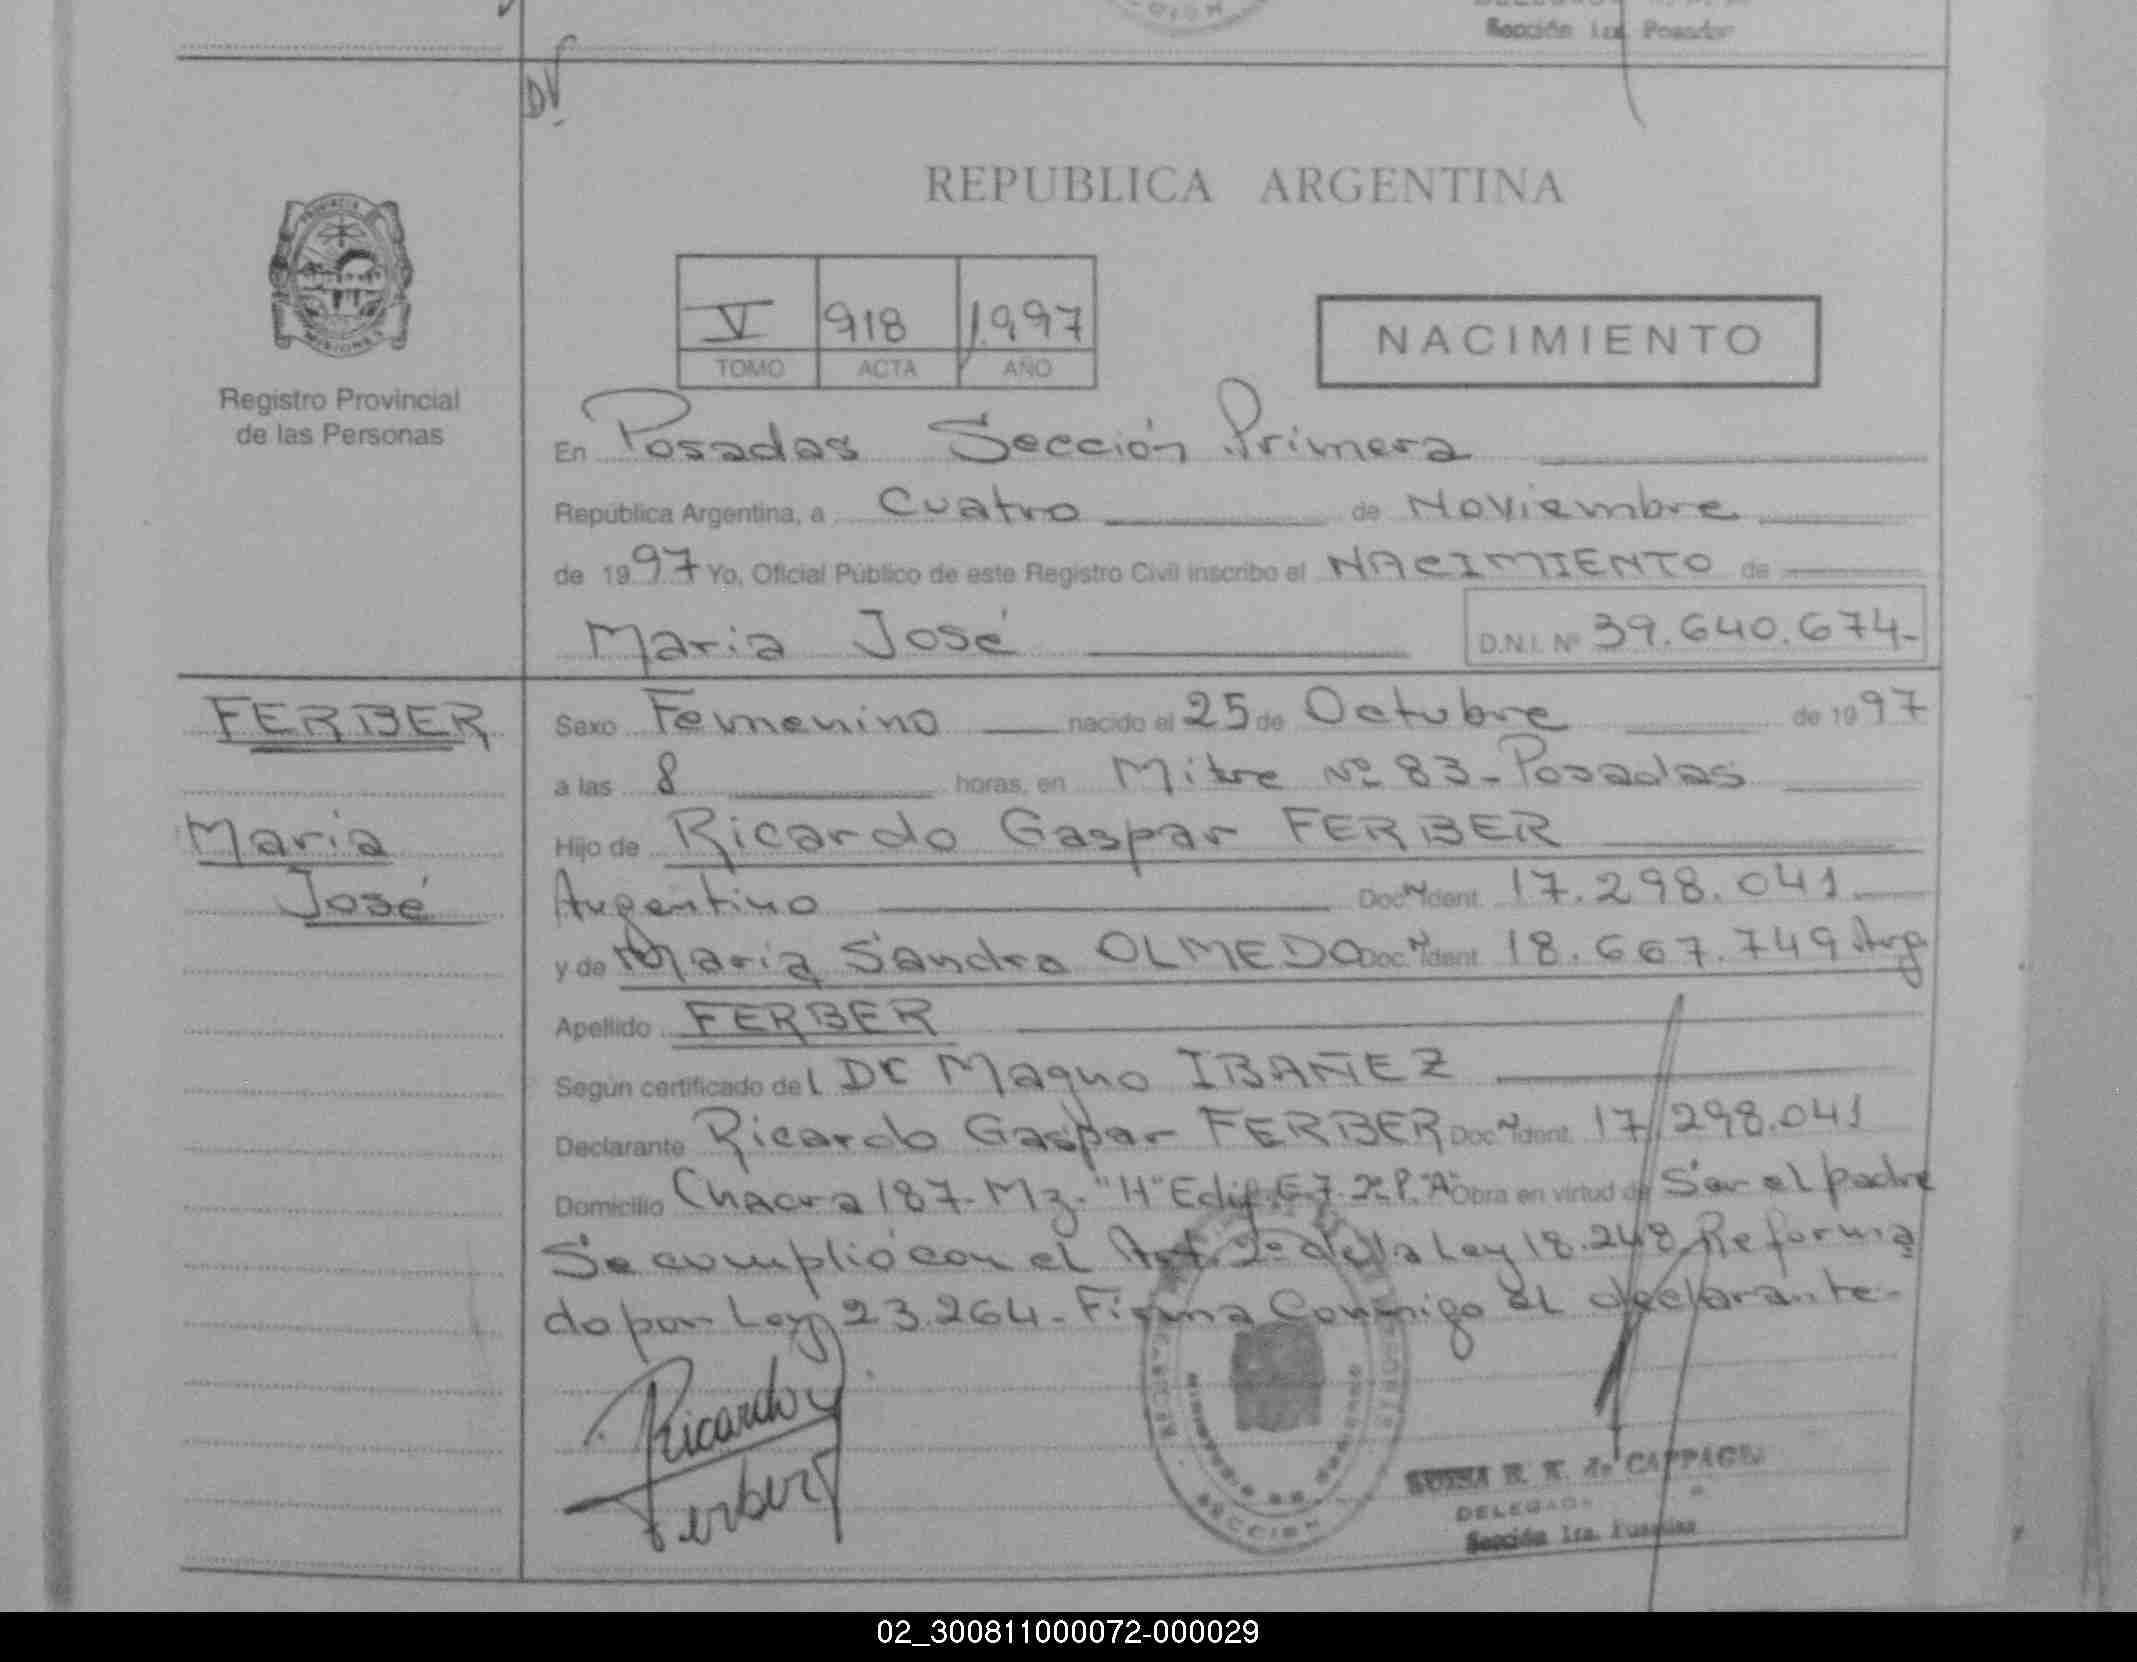 Sección 1ra. Posadas
DV
REPUBLICA ARGENTINA
PROVINCIA
MISIONES
Registro Provincial
de las Personas
V 918 1.997
TOMO ACTA AÑO
NACIMIENTO
En Posadas Sección Primera
República Argentina, a Cuatro de Noviembre
de 1997 Yo, Oficial Público de este Registro Civil inscribo el NACIMIENTO de
Maria José D.N.I. Nº 39.640.674-
FERBER
Maria
José
Sexo Femenino nacido el 25 de Octubre de 1997
a las 8 horas, en Mitre Nº 83-Posadas
Hijo de Ricardo Gaspar FERBER
Argentino Doc. Ident. 17.298.041
y de Maria Sandra OLMEDO Doc. Ident. 18.667.749 Arg
Apellido FERBER
Según certificado del Dr Magno IBAÑEZ
Declarante Ricardo Gaspar FERBER Doc. Ident. 17.298.041
Domicilio Chacra 187-Mz-"H" Edif. E.7. 2º P. "A" Obra en virtud de Ser el padre
Se cumplió con el Art. 2º de la Ley 18.248 Reforma
do por Ley 23.264- Firma Conmigo el declarante-
Ricardo
Ferber
SECCION
de CAPPAGLI
DELEGADA
Sección 1ra. Posadas
02_300811000072-000029